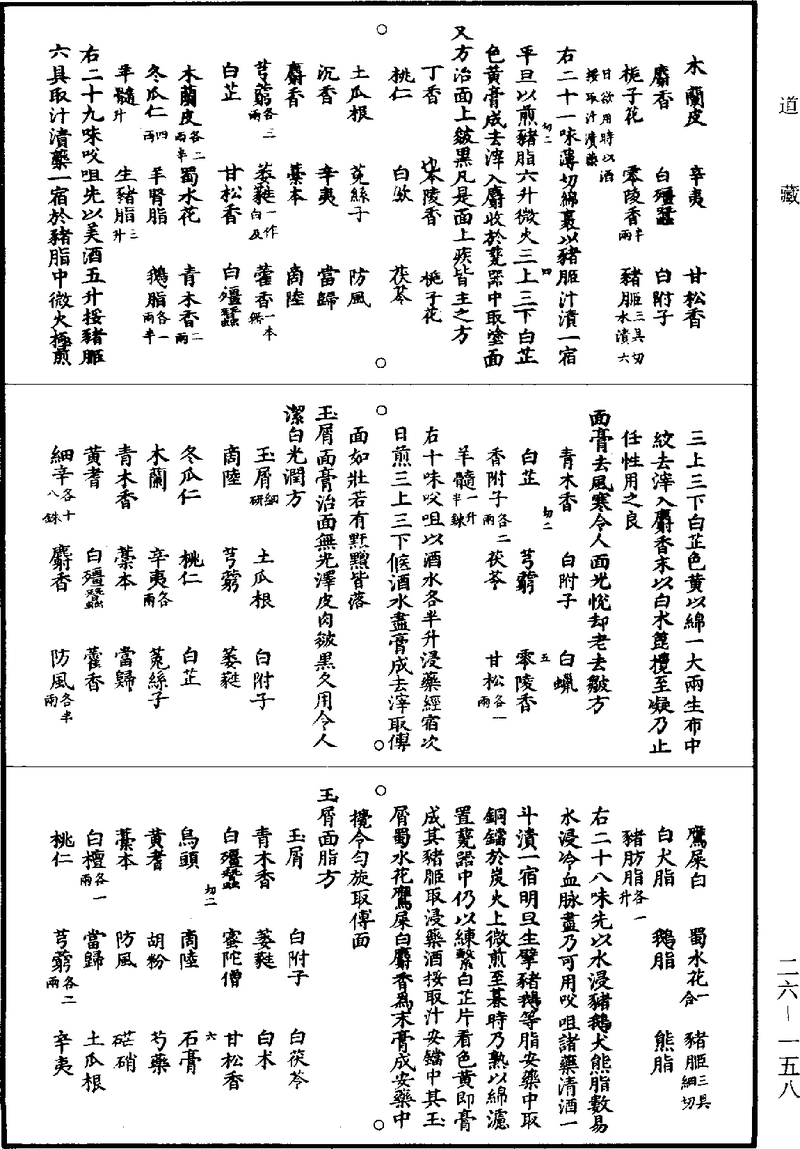 道藏
木蘭皮 辛夷 甘松香
麝香 白殭蠶 白附子
梔子花 零陵香半兩 豬胵三具切水漬六
日欲用時以酒挼取汁漬藥
右二十一味薄切綿裹以豬胵汁漬一宿
平旦以煎豬脂六升微火三上三下白芷
色黄膏成去滓入麝收於甆器中取塗面
又方治面上皺黑凡是面上疾皆主之方
丁香 零陵香 梔子花
桃仁 白斂 茯苓
土瓜根 菟絲子 防風
沉香 辛夷 當歸
麝香 藁本 商陸
芎藭各三兩 萎蕤一作白及 藿香一本無
白芷 甘松香 白殭蠶
木蘭皮各二兩半 蜀水花 青木香二兩
冬瓜仁四兩 羊腎脂 鵝脂各一兩半
羊髓升 生豬脂三升
右二十九味㕮咀先以美酒五升挼豬胵
六具取汁漬藥一宿於豬脂中微火極煎
三上三下白芷色黄以綿一大兩生布中
絞去滓入麝香末以白木篦攪至凝乃止
任性用之良
面膏去風寒令人面光悅却老去皺方
青木香 白附子 白蠟
白芷 芎藭 零陵香
香附子各二兩 茯苓 甘松各一兩
羊髓一升半鍊
右十味㕮咀以酒水各半升浸藥經宿次
日煎三上三下候酒水盡膏成去滓取傅
面如壯若有䵟䵳皆落
玉屑面膏治面無光澤皮肉皴黑久用令人
潔白光潤方
玉屑細研 土瓜根 白附子
商陸 芎藭 萎蕤
冬瓜仁 桃仁 白芷
木蘭 辛夷各兩 菟絲子
青木香 藁本 當歸
黄耆 白殭蠶 藿香
細辛各十八銖 麝香 防風各半兩
鷹屎白 蜀水花一合 豬胵三具細切
白犬脂 鵝脂 熊脂
豬肪脂各一升
右二十八味先以水浸豬鵝犬熊脂數易
水浸冷血脉盡乃可用㕮咀諸藥清酒一
斗漬一宿明旦生擘豬鵝等脂安藥中取
銅鐺於炭火上微煎至暮時乃熟以綿濾
置甆器中仍以練繫白芷片看色黄即膏
成其豬胵取浸藥酒挼取汁安鐺中其玉
屑蜀水花鷹屎白麝香為末膏成安藥中
攪令匀旋取傅面
玉屑面脂方
玉屑 白附子 白茯苓
青木香 萎蕤 白朮
白殭蠶 蜜陀僧 甘松香
烏頭 商陸 石膏
黄耆 胡粉 芍藥
藁本 防風 芒硝
白檀各一兩 當歸 土瓜根
桃仁 芎藭各二兩 辛夷
二六—一五八